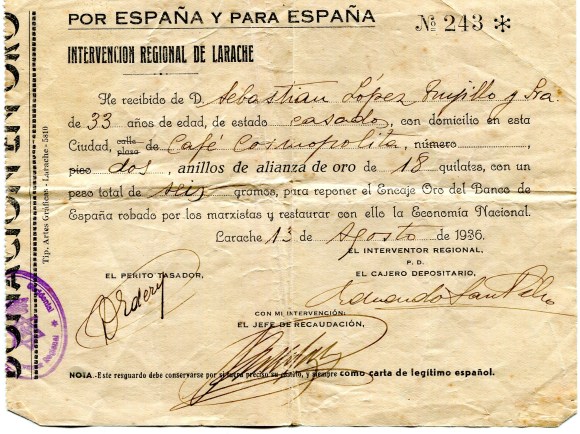 POR ESPAÑA Y PARA ESPAÑA
Nº 243 *
INTERVENCION REGIONAL DE LARACHE
He recibido de D. Sebastian López Trujillo y Sra.
de 33 años de edad, de estado casado, con domicilio en esta
Ciudad, calle plaza de Café Cosmopolita, número
piso dos, anillos de alianza de oro de 18 quilates, con un
peso total de seis gramos, para reponer el Encaje Oro del Banco de
España robado por los marxistas y restaurar con ello la Economía Nacional.
Larache 13 de Agosto de 1936.
EL INTERVENTOR REGIONAL,
P. D.
EL PERITO TASADOR,
EL CAJERO DEPOSITARIO,
Eduardo
CON MI INTERVENCIÓN:
EL JEFE DE RECAUDACIÓN,
NOTA.-Este resguardo debe conservarse por si fuera preciso su canje, y siempre como carta de legítimo español.
DONACION EN ORO
Tip. Artes Gráficas.-Larache-5810